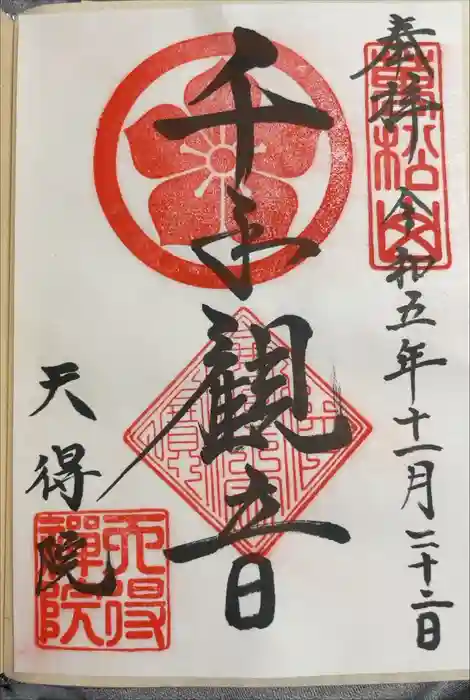 奉拝 令和五年十一月二十二日
萬松山
千手觀音
天得院
天得禪院